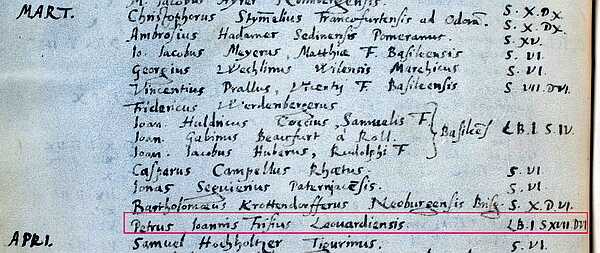 M. Jacobus Ayrer
MART. Christophorus Stymelius Francofurtensis ad Odoram. S. X. DX.
Ambrosius Hadamer Sedinensis Pomeranus. S. XV.
Io. Iacobus Meyerus, Matthiæ F. Basileensis S. VI.
Georgius Wechlinus Wilensis Marchicus S. VI.
Vincentius Prallus, Vicenty F. Basileensis S. VII. DVI.
Fridericus Werdenbergerus
Ioan. Huldricus Coccius, Samuelis F.
Ioan. Gabinus Beaufort à Roll. Basileẽs LB. I. S. IV.
Ioan. Iacobus Huberus, Rudolphi F.
Casparus Campellus Rhætus. S. VI.
Ionas Seguienus Paterniacẽsis. S. VI.
Bartholomæus Krottendorfferus Neoburgensis Brisg. S. X. D. VI.
Petrus Ioannis Frisius Leowardiensis. LB. I S XVII. DVI
APRI. Samuel Hochholtzer Tigurinus. S. VI.